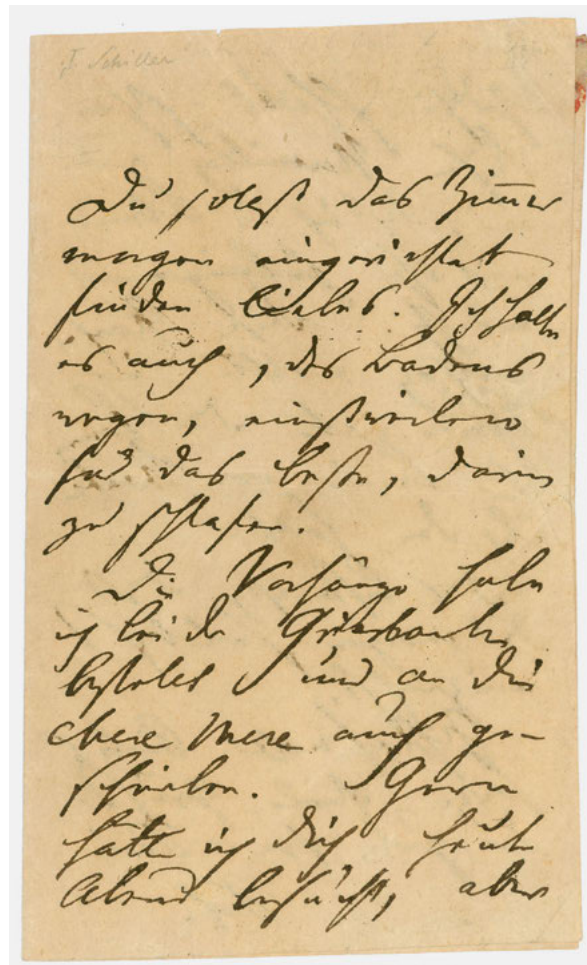 F. Schiller
Du sollst das Zimmer
morgen eingerichtet
finden Liebes. Ich halte
es auch, des Badens
wegen, einstweilen
für das beste, darin
zu schlafen.
Die Vorhänge habe
ich bei der Griesbach
bestellt und an die
chere mere auch ge-
schrieben. Gern
hätte ich dich heute
Abend besucht, aber